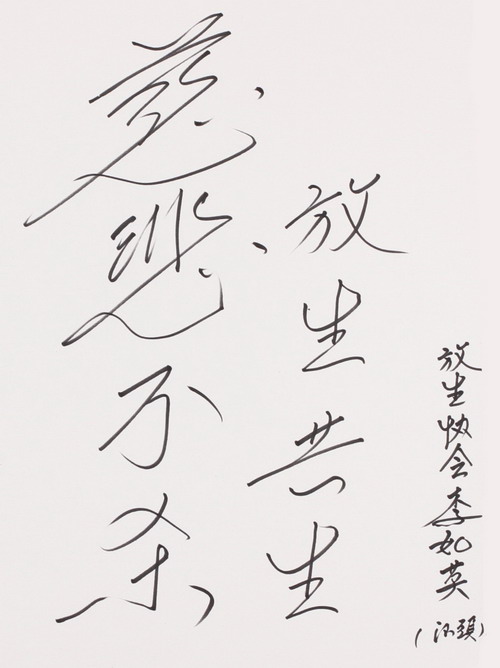 慈悲不杀
放生共生
放生协会李如英
(汕頭)